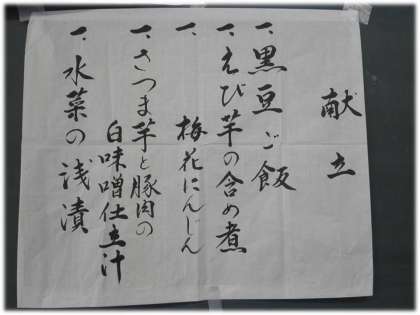 献立
一、黒豆ご飯
一、えび芋の含め煮
一、梅花にんじん
一、さつま芋と豚肉の
白味噌仕立汁
一、水菜の浅漬